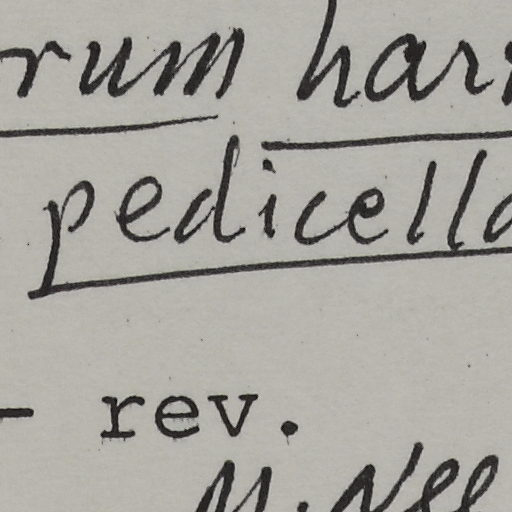 rum har
pedicella
- rev.
M. Nee